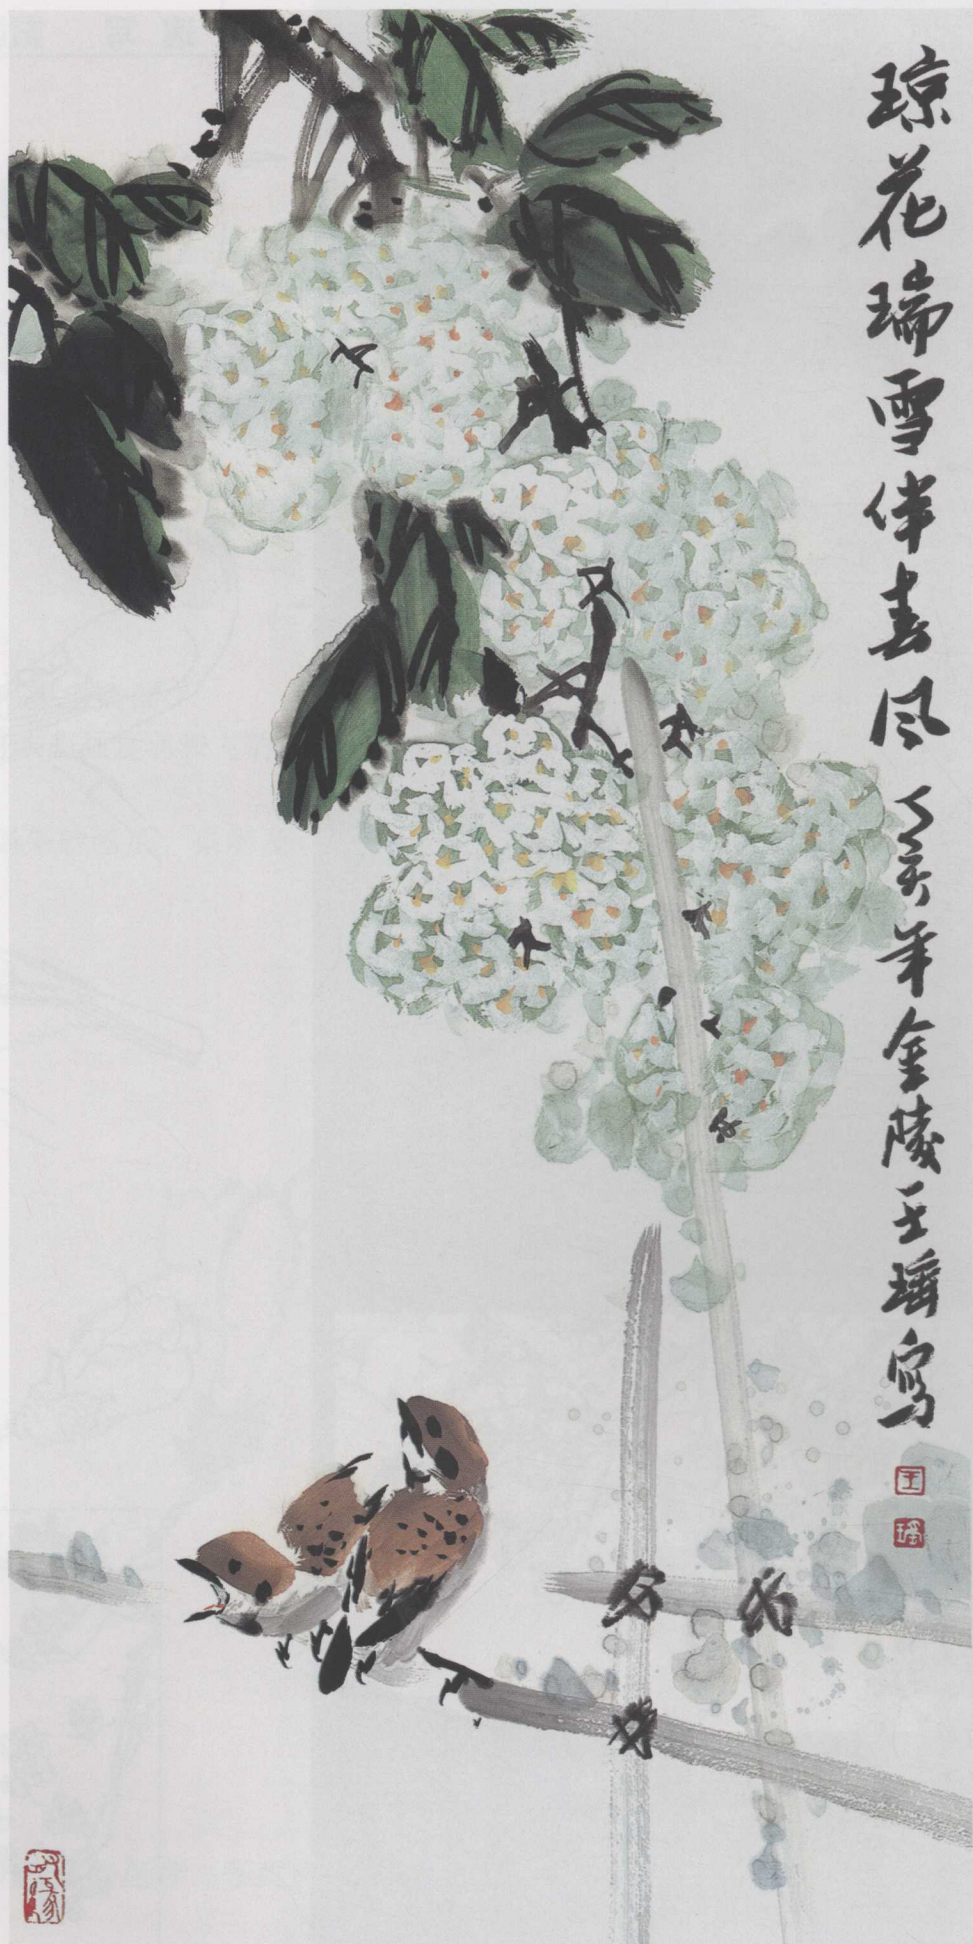 琼花瑞雪伴春风 丁亥年金陵王瑶写
王
瑶